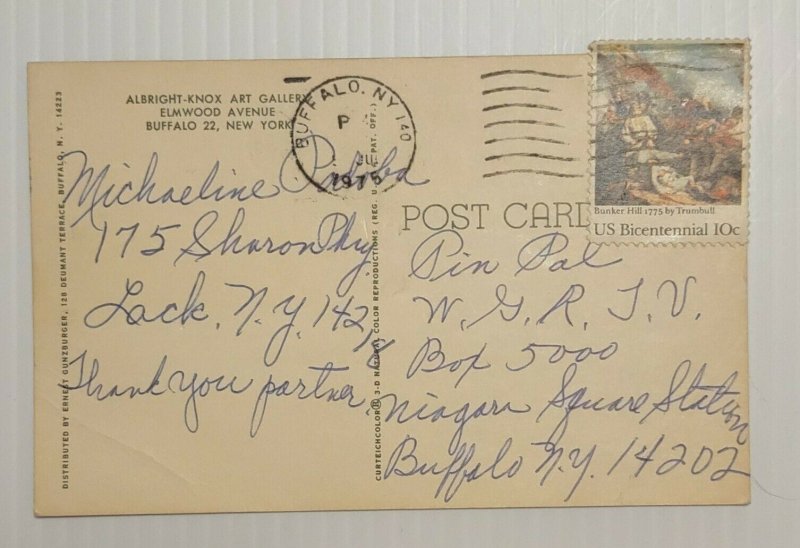 ALBRIGHT-KNOX ART GALLERY
ELMWOOD AVENUE
BUFFALO 22, NEW YORK
BUFFALO, NY 140
P
JUL
1975
Michaeline
175 Sharon Pky
Lack. N.Y. 142
Thank you partner
DISTRIBUTED BY ERNEST GUNZBURGER, 128 DEUMANT TERRACE, BUFFALO, N. Y. 14223
CURTEICHCOLOR® 3-D NATURAL COLOR REPRODUCTIONS (REG. U. S. A. PAT. OFF.)
POST CARD
Bunker Hill 1775 by Trumbull
US Bicentennial 10c
Pin Pal
W. G. R. T.V.
Box 5000
Niagara Square Station
Buffalo N.Y. 14202